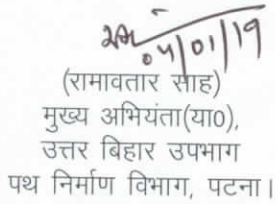 04/01/19
(रामावतार साह)
मुख्य अभियंता(या0),
उत्तर बिहार उपभाग
पथ निर्माण विभाग, पटना।